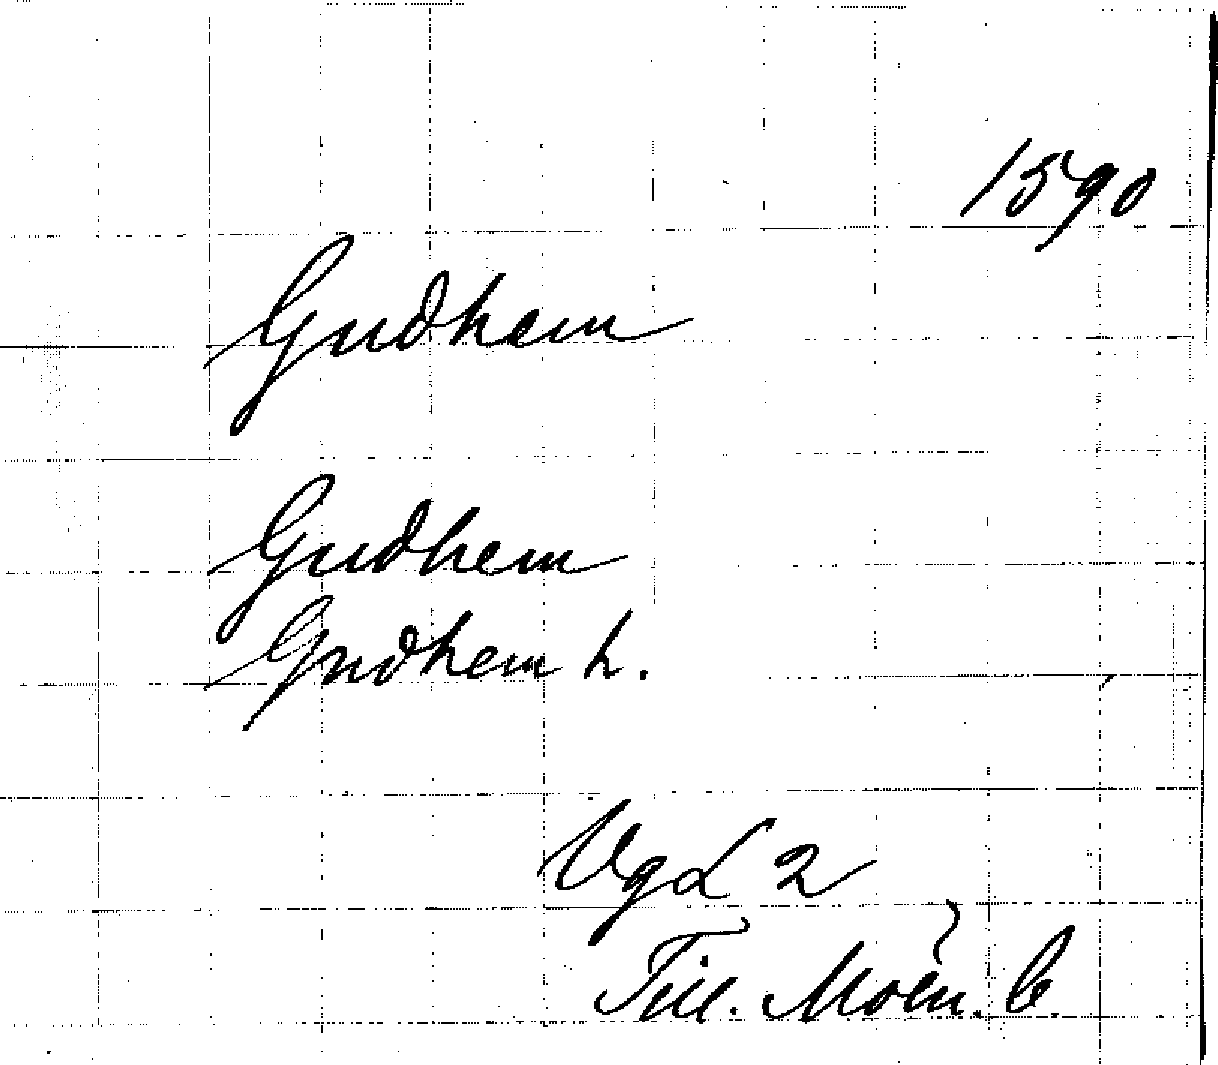 1590
Gudhem
Gudhem
Gudhem h.
Vgd 2
Till. Moën. b.